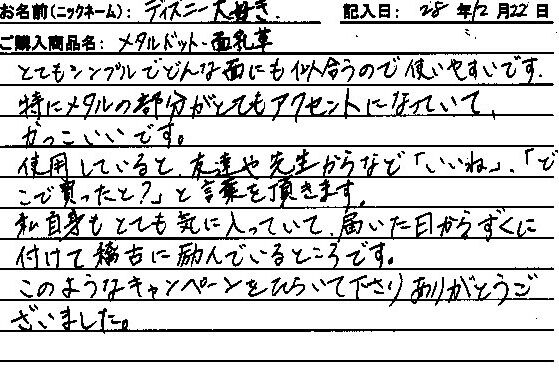 お名前(ニックネーム): ディズニー大好き. 記入日: 28 年12月22日
ご購入商品名: メタルドット・面乳革
とてもシンプルでどんな面にも似合うので使いやすいです.
特にメタルの部分がとてもアクセントになっていて、
かっこいいです。
使用していると、友達や先生からなど「いいね」、「ど
こで買ったと?」と言葉を頂きます。
私自身もとても気に入っていて、届いた日からすぐに
付けて稽古に励んでいるところです。
このようなキャンペーンをひらいて下さりありがとうご
ざいました。